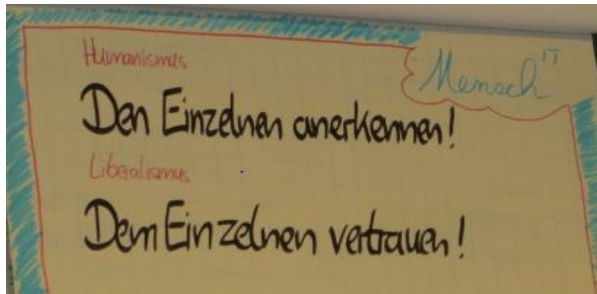 Humanismus
Mensch IT
Den Einzelnen anerkennen!
Liberalismus
Dem Einzelnen vertrauen!